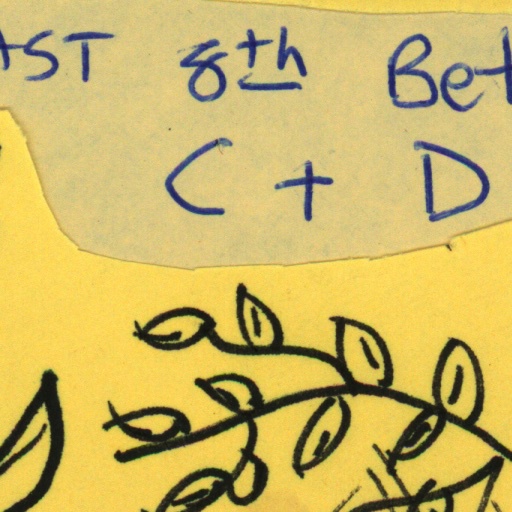 AST 8th Bet
C + D